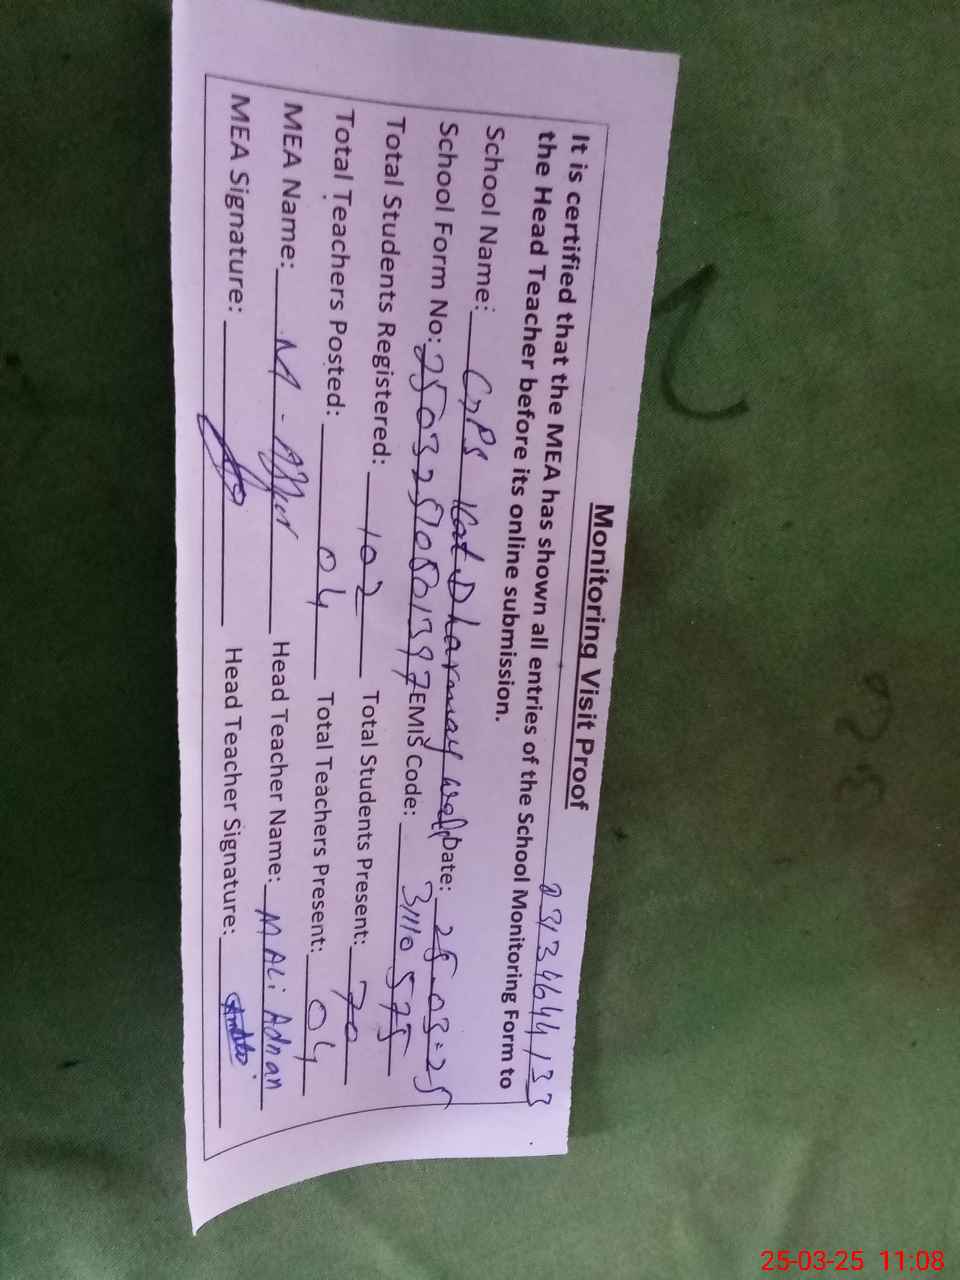 Monitoring Visit Proof
03134644133
It is certified that the MEA has shown all entries of the School Monitoring Form to
the Head Teacher before its online submission.
School Name: GPS Kot Dharmay wala Date: 25-03-25
School Form No: EMIS Code: 31110575
Total Students Registered: 102 Total Students Present: 70
Total Teachers Posted: 04 Total Teachers Present: 04
MEA Name: M. Head Teacher Name: M ALi Adnan
MEA Signature: Head Teacher Signature:
25-03-25 11:08